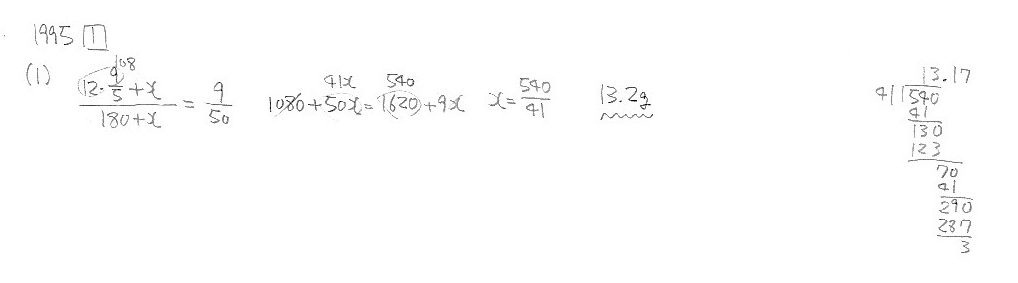 1995 1
(1) (12·9/5+x)/(180+x) = 9/50 1080+50x=1620+9x x=540/41 13.2g
108
41x 540
13.17
41)540
41
130
123
70
41
290
287
3